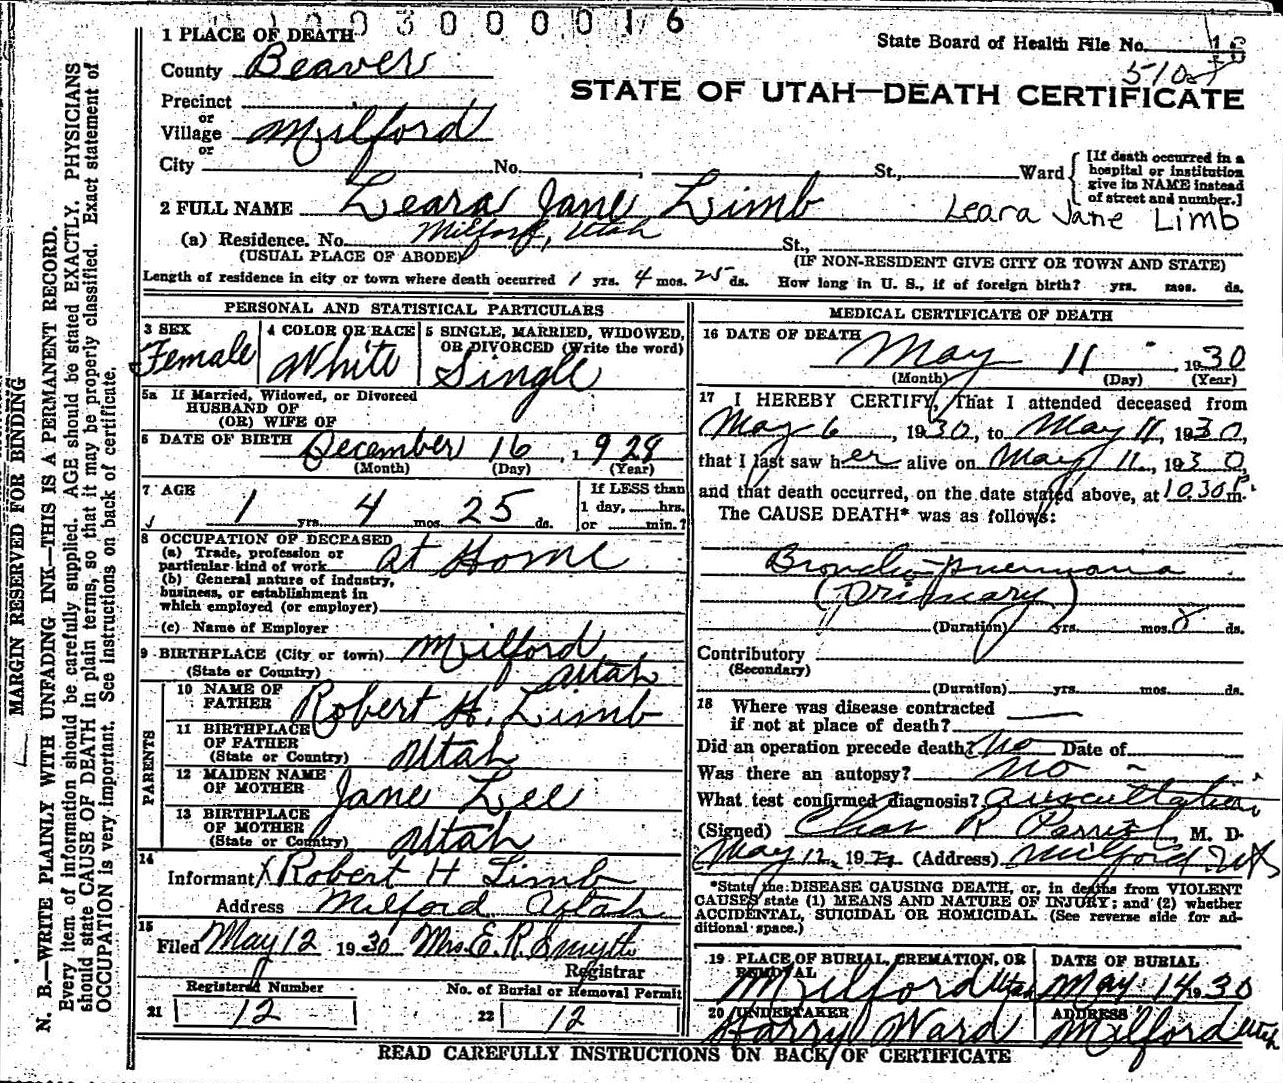 0 1 0 0 3 0 0 0 0 1 6
1 PLACE OF DEATH
State Board of Health File No.
County Beaver
STATE OF UTAH—DEATH CERTIFICATE
Precinct
or
Village Milford
or
City No. St., Ward
[If death occurred in a
hospital or institution
give its NAME instead
of street and number.]
2 FULL NAME Leara Jane Limb Leara Jane Limb
(a) Residence. No. Milford, Utah St.,
(USUAL PLACE OF ABODE) (IF NON-RESIDENT GIVE CITY OR TOWN AND STATE)
Length of residence in city or town where death occurred 1 yrs. 4 mos. 25 ds. How long in U. S., if of foreign birth? yrs. mos. ds.
PERSONAL AND STATISTICAL PARTICULARS
3 SEX 4 COLOR OR RACE 5 SINGLE, MARRIED, WIDOWED,
OR DIVORCED (Write the word)
Female White Single
5a If Married, Widowed, or Divorced
HUSBAND OF
(OR) WIFE OF
6 DATE OF BIRTH December 16, 1928
(Month) (Day) (Year)
7 AGE
1 yrs. 4 mos. 25 ds.
If LESS than
1 day, hrs.
or min.?
8 OCCUPATION OF DECEASED
(a) Trade, profession or
particular kind of work at Home
(b) General nature of industry,
business, or establishment in
which employed (or employer)
(c) Name of Employer
9 BIRTHPLACE (City or town) Milford
(State or Country) Utah
PARENTS
10 NAME OF
FATHER Robert H. Limb
11 BIRTHPLACE
OF FATHER
(State or Country) Utah
12 MAIDEN NAME
OF MOTHER Jane Lee
13 BIRTHPLACE
OF MOTHER
(State or Country) Utah
14
Informant X Robert H Limb
Address Milford Utah
15
Filed May 12 1930 Mrs. E. R. Smyth
Registrar
Registered Number No. of Burial or Removal Permit
21 12 22 12
MEDICAL CERTIFICATE OF DEATH
16 DATE OF DEATH
May 11 1930
(Month) (Day) (Year)
17 I HEREBY CERTIFY, That I attended deceased from
May 6, 1930, to May 11, 1930,
that I last saw her alive on May 11, 1930,
and that death occurred, on the date stated above, at 10.30 P. m.
The CAUSE DEATH* was as follows:
Broncho-pneumonia
(Primary)
(Duration) yrs. mos. 8 ds.
Contributory
(Secondary)
(Duration) yrs. mos. ds.
18 Where was disease contracted
if not at place of death?
Did an operation precede death? No Date of
Was there an autopsy? No
What test confirmed diagnosis? auscultation
(Signed) Chas R Parrish, M. D.
May 12, 19 (Address) Milford Ut
*State the DISEASE CAUSING DEATH, or, in deaths from VIOLENT
CAUSES state (1) MEANS AND NATURE OF INJURY; and (2) whether
ACCIDENTAL, SUICIDAL OR HOMICIDAL. (See reverse side for ad-
ditional space.)
19 PLACE OF BURIAL, CREMATION, OR
REMOVAL
Milford Utah
DATE OF BURIAL
May 14 1930
20 UNDERTAKER
Harry Ward
ADDRESS
Milford Utah
READ CAREFULLY INSTRUCTIONS ON BACK OF CERTIFICATE
MARGIN RESERVED FOR BINDING
N. B.—WRITE PLAINLY WITH UNFADING INK—THIS IS A PERMANENT RECORD.
Every item of information should be carefully supplied. AGE should be stated EXACTLY. PHYSICIANS
should state CAUSE OF DEATH in plain terms, so that it may be properly classified. Exact statement of
OCCUPATION is very important. See instructions on back of certificate.